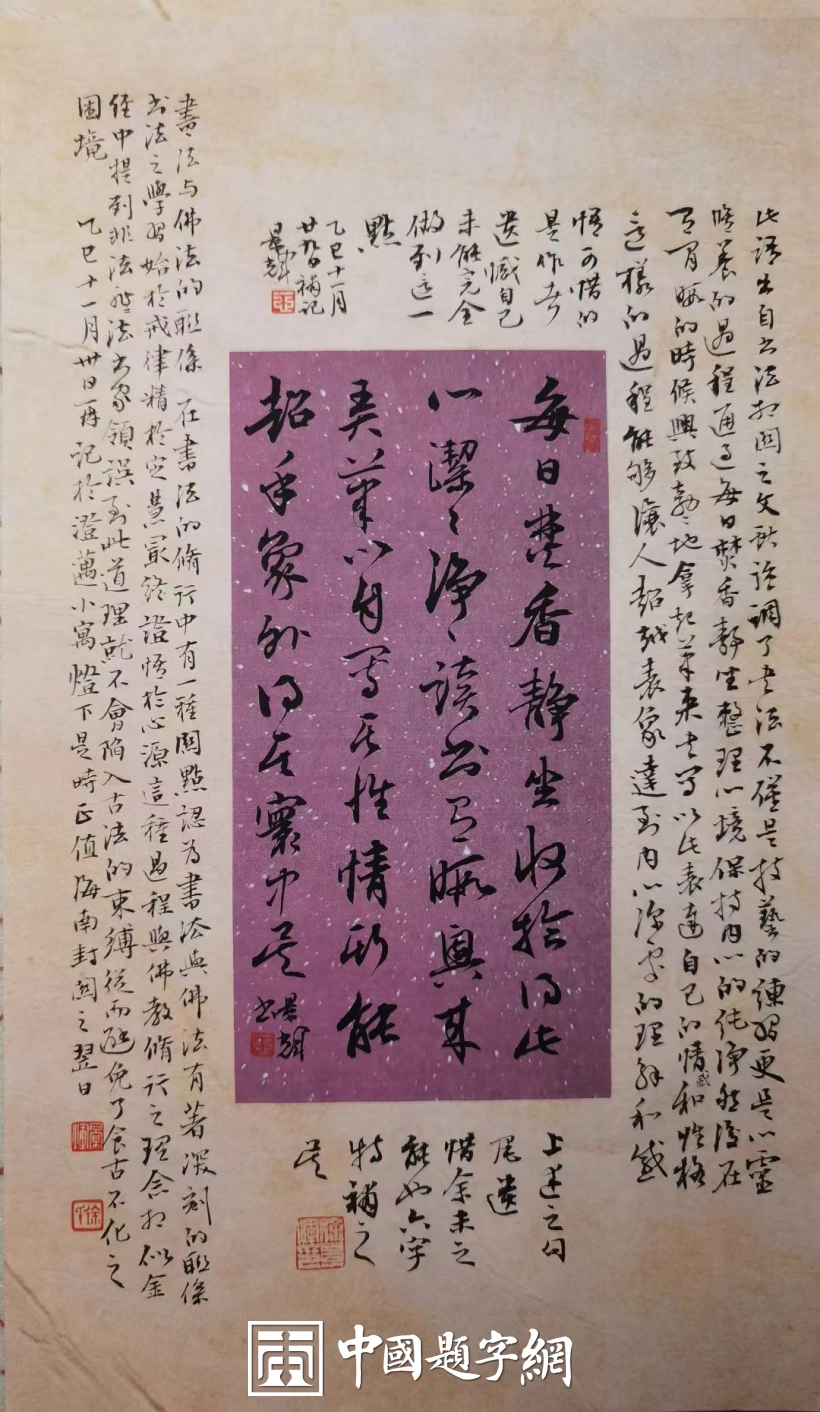 每日焚香静坐收拾得此
心潔〻淨〻讀書有暇興來
弄筆以自寫其性情斯能
超乎象外得其寰中矣
景輝書
此語出自书法相関之文献強調了书法不僅是技藝的練習更是心靈
修養的過程通過每日焚香静坐整理心境保持内心的純淨然後在
有閒暇的時候興致勃〻地拿起筆来書寫以此表達自己的情感和性格
這樣的過程能够讓人超越表象達到内心深處的理解和感
悟可惜的
是作者
遗憾自己
未能完全
做到這一
點
乙巳十一月
廿九日補記
景輝
上述之句
尾遗
惜余未之
能也六字
特補之
矣
書法与佛法的联係 在書法的脩行中有一種関點認为書法與佛法有著深刻的联係
书法之學習始於戒律精於定慧最終證悟於心源這種過程與佛教脩行之理念相似金
经中提到非法非法书家領误到此道理就不會陷入古法的束縛從而避免了食古不化之
困境 乙巳十一月卅日再記於澄邁小寓燈下是時正值海南封関之翌日
中國題字網